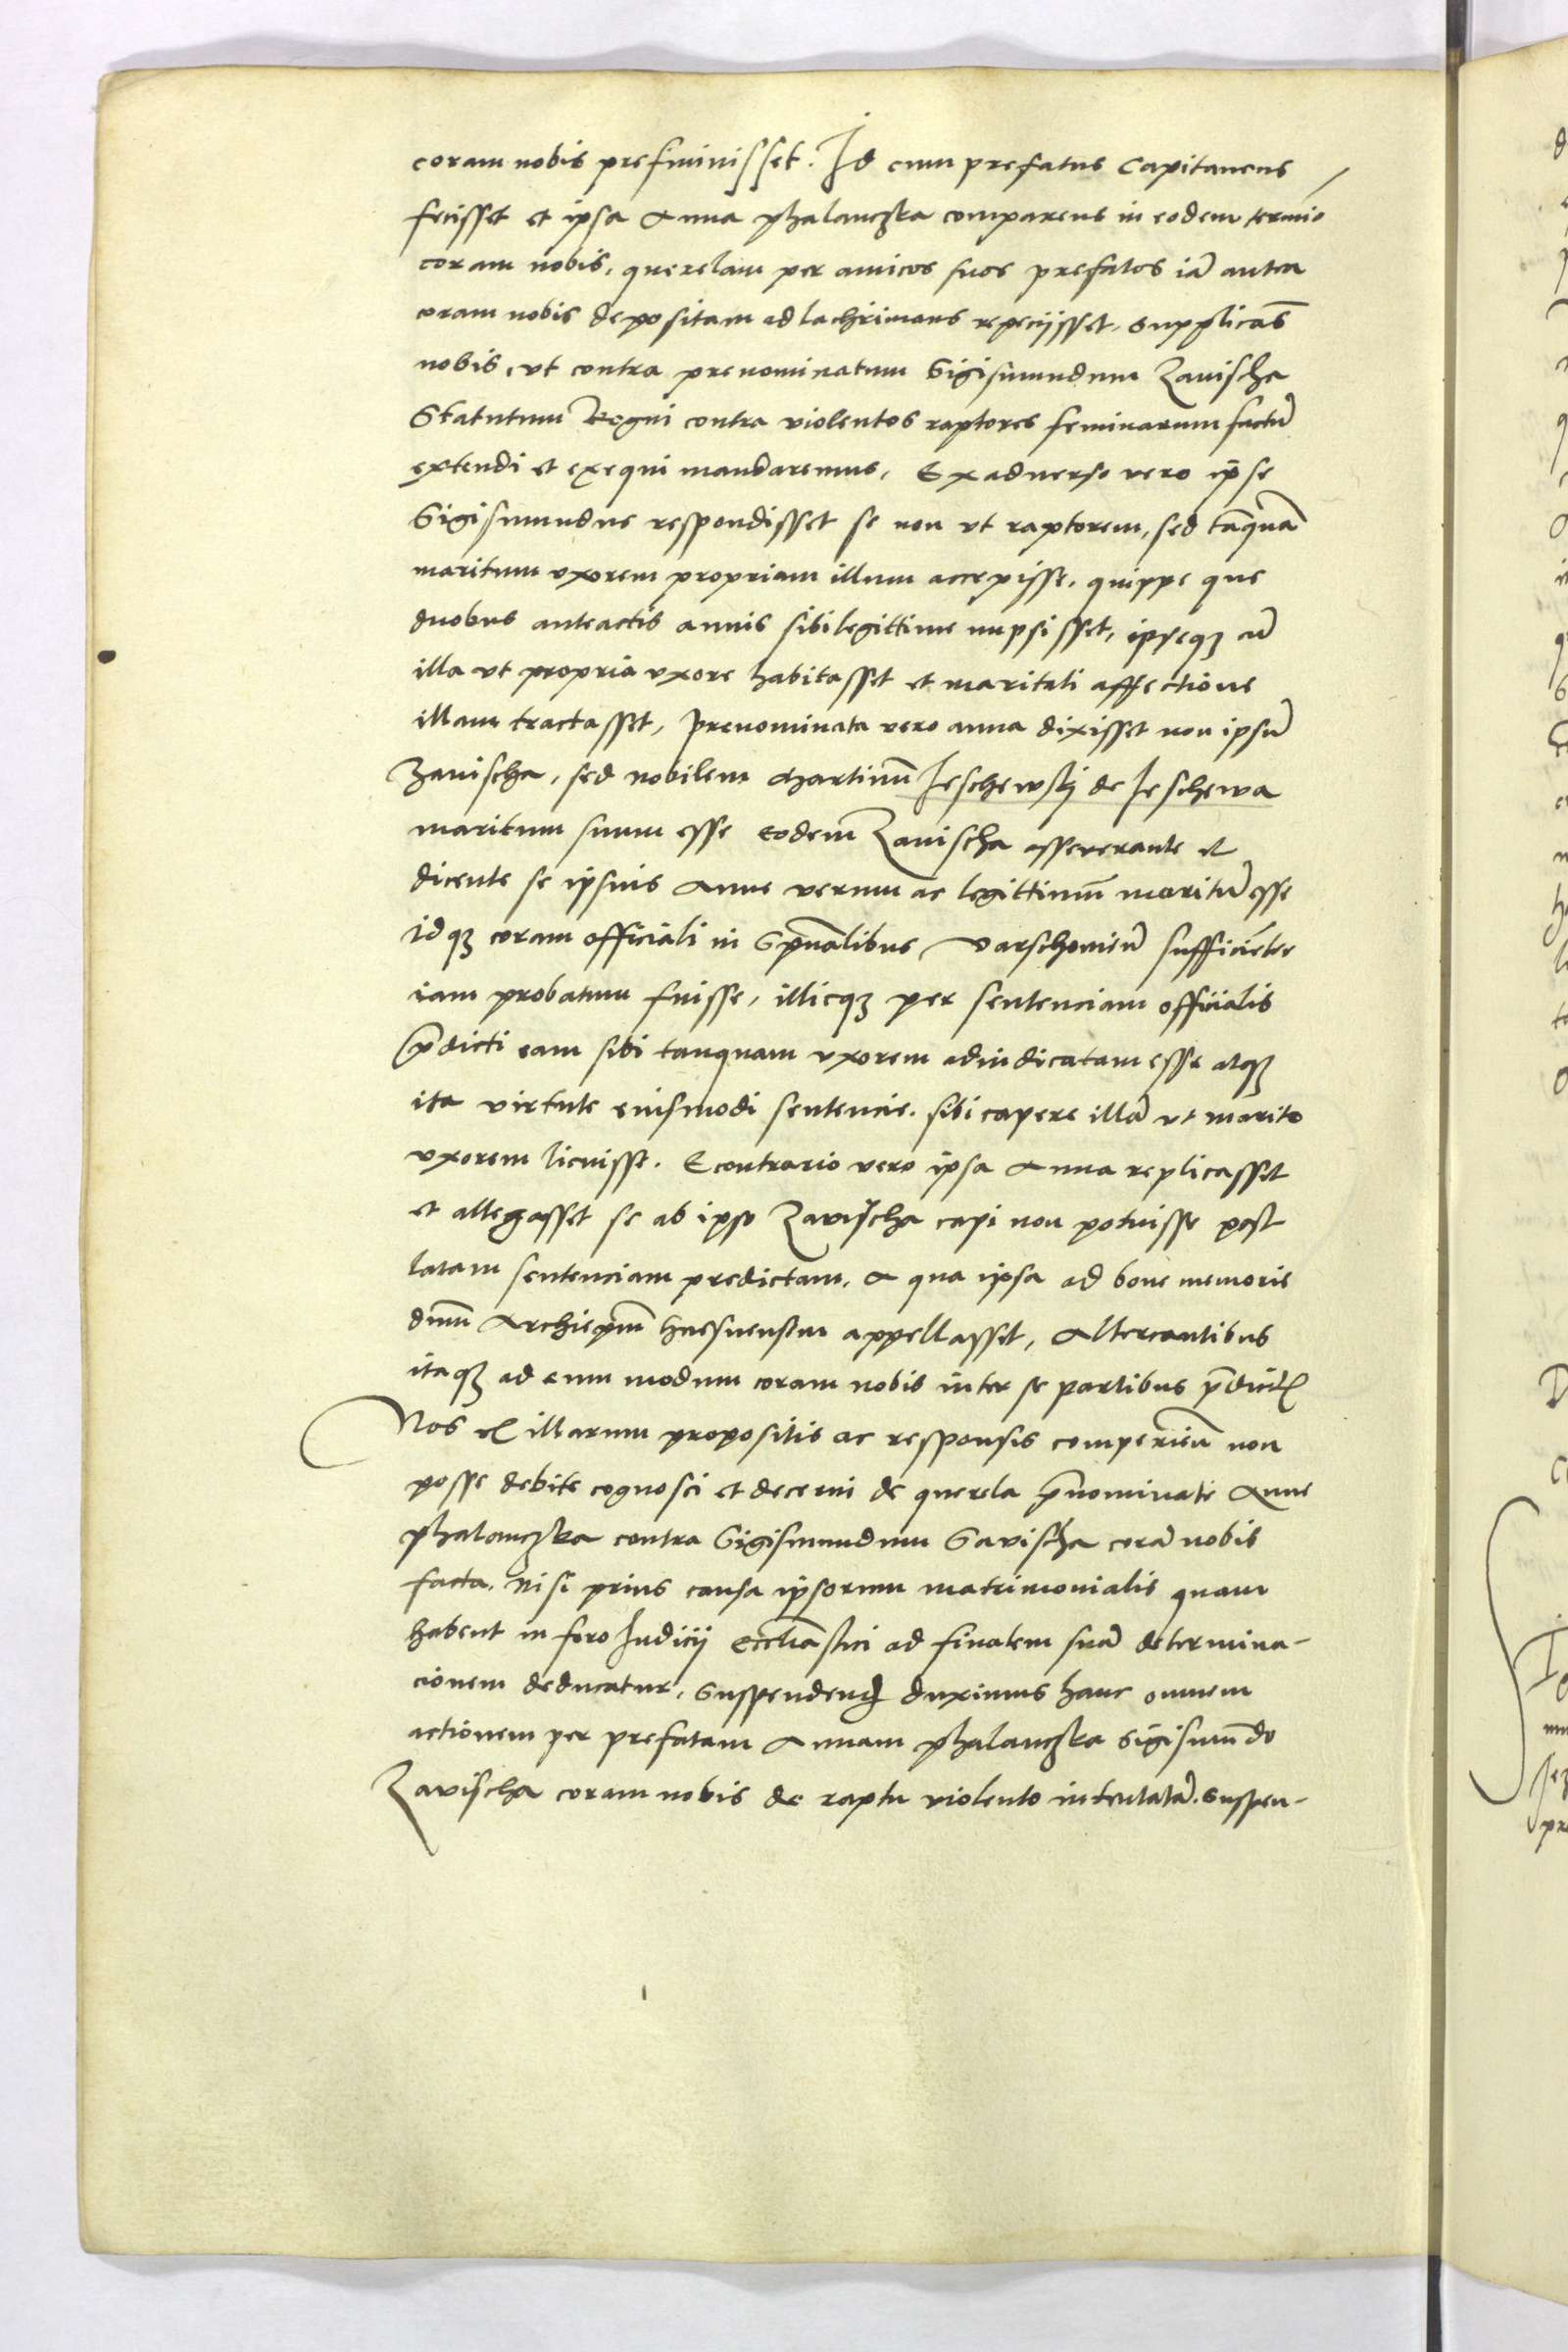 coram nobis prefinisset. Id cum prefatus Capitaneus
fecisset et ipsa Anna phalanczka comparens in eodem termio
coram nobis, querelam per amicos suos prefatos iã antea
coram nobis depositam adlachrimans repetijsset, supplicãs
nobis, ut contra prenominatum Sigismundum Zavischa
Statutum Regni contra violentos raptores feminarum factũ
extendi et exequi mandaremus. Ex adverso vero ipse
Sigismundus respondisset se non ut raptorem, sed tãquã
maritum uxorem propriam illum accepisse, quippe que
duobus anteactis annis sibi legittime nupsisset, ipseqꝫ cũ
illa ut propria uxore habitasset et maritali affectione
illam tractasset, prenominata vero anna dixisset non ipsũ
Zavischa, sed nobilem Martinũ Jeschewskj de Jeschewa
maritum suum esse eodem Zavischa asseverante et
dicente se ipsius Anne verum ac legittimũ maritũ esse
idqꝫ coram officiali in Sp̃ualibus Varschovieñ sufficiẽter
iam probatum fuisse, illicqꝫ per sentenciam officialis
p̃dicti eam sibi tanquam uxorem adiudicatam esse atqꝫ
ita virtute eiusmodi sentencie. sibi capere illã ut marito
uxorem licuisse. Econtrario vero ipsa Anna replicasset
et allegasset se ab ipso Zavischa capi non potuisse post
latam sentenciam predictam, A qua ipsa ad bone memorie
dñm Archiep̃m Gnesnensem appellasset, Altercantibus
itaqꝫ ad eum modum coram nobis inter se partibus p̃dictꝭ
Nos ex illarum propositis ac responsis comperieñ non
posse debite cognosci et decerni de querela p̃nominate Anne
phalanczka contra Sigismundum Savischa corã nobis
facta, nisi prius causa ipsorum matrimonialis quam
habent in foro Judicij eccl̃iastici ad finalem suã determina-
cionem deducatur, Suspendenꝺ duximus hanc omnem
actionem per prefatam Annam phalanczka Sigismũdo
Zavischa coram nobis de raptu violento intentatã. Suspen-